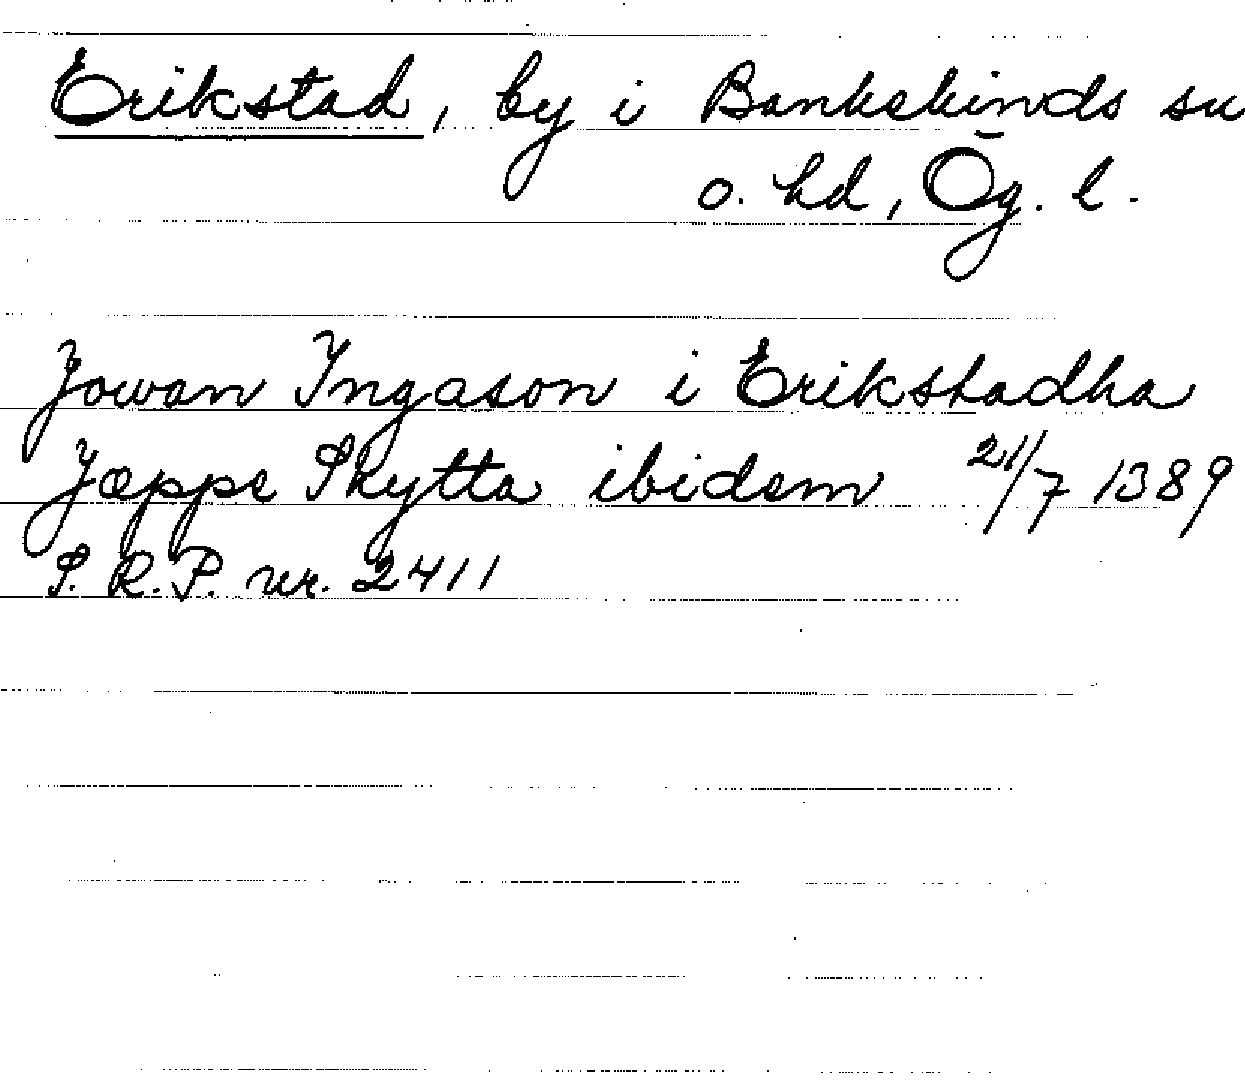 Erikstad, by i Bankekinds sn
o. hd, Ög. l.
Jowan Ingason i Erikstadha
Jæppe Skytta ibidem 21/7 1389
S. R. P. nr. 2411